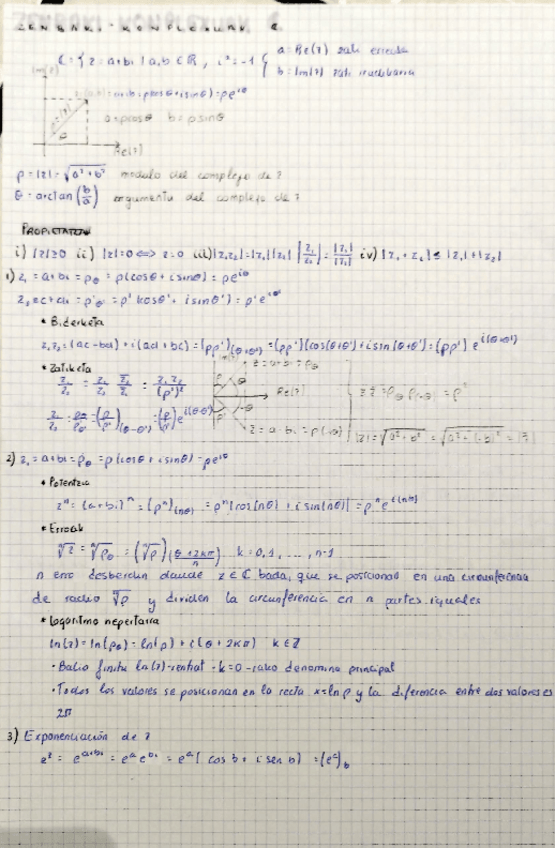 ZENBAKI - KONPLEXUAK C
C = { z = a+bi | a,b ∈ R, i² = -1 { a = Re(z) zati erreala
b = Im(z) zati irudikaria
Im(z)
a+bi = p(cosθ + i sinθ) = pe^{iθ}
a = p cosθ b = p sinθ
Re(z)
ρ = |z| = √(a² + b²) modulo del complejo de z
θ = arctan(b/a) argumento del complejo de z
PROPIETATEAK
i) |z| ≥ 0 ii) |z| = 0 ⟺ z = 0 iii) |z₁z₂| = |z₁||z₂| |z₁/z₂| = |z₁|/|z₂| iv) |z₁ + z₂| ≤ |z₁| + |z₂|
1) z₁ = a+bi = ρ_θ = ρ(cosθ + i sinθ) = ρe^{iθ}
z₂ = c+di = ρ'_θ' = ρ'(cosθ' + i sinθ') = ρ'e^{iθ'}
• Biderketa
z₁z₂ = (ac-bd) + i(ad+bc) = (ρρ')_(θ+θ') = (ρρ')(cos(θ+θ') + i sin(θ+θ')) = (ρρ') e^{i(θ+θ')}
• Zatiketa
Im(z) z = a+bi = ρ_θ
z₁/z₂ = z₁/z₂ z̄₂/z̄₂ = z₁z̄₂/(ρ')²
Re(z) z z̄ = ρ_θ ρ_(-θ) = ρ²
z₁/z₂ = ρ_θ/ρ'_θ' = (ρ/ρ')_(θ-θ') = (ρ/ρ')e^{i(θ-θ')}
z̄ = a - bi = ρ_(-θ) |z| = √(a² + b²) = √(a² + (-b)²) = |z̄|
2) z₁ = a+bi = ρ_θ = ρ(cosθ + i sinθ) = ρe^{iθ}
• Potentzia
zⁿ = (a+bi)ⁿ = (ρⁿ)_(nθ) = ρⁿ(cos(nθ) + i sin(nθ)) = ρⁿ e^{i(nθ)}
• Erroak
ⁿ√z = ⁿ√ρ_θ = (ⁿ√ρ)_((θ+2kπ)/n) k = 0, 1, ..., n-1
n erro desberdin daude z ∈ C bada, que se posicionan en una circunferencia
de radio ⁿ√ρ y dividen la circunferencia en n partes iguales
• Logaritmo nepertarra
ln(z) = ln(ρ_θ) = ln(ρ) + i(θ + 2kπ) k ∈ Z
• Balio finitu ln(z)-rentzat · k=0-rako denomina principal
• Todos los valores se posicionan en la recta x = ln ρ y la diferencia entre dos valores es
2π
3) Exponenciación de z
e^z = e^{a+bi} = e^a e^{bi} = e^a (cos b + i sen b) = (e^a)_b